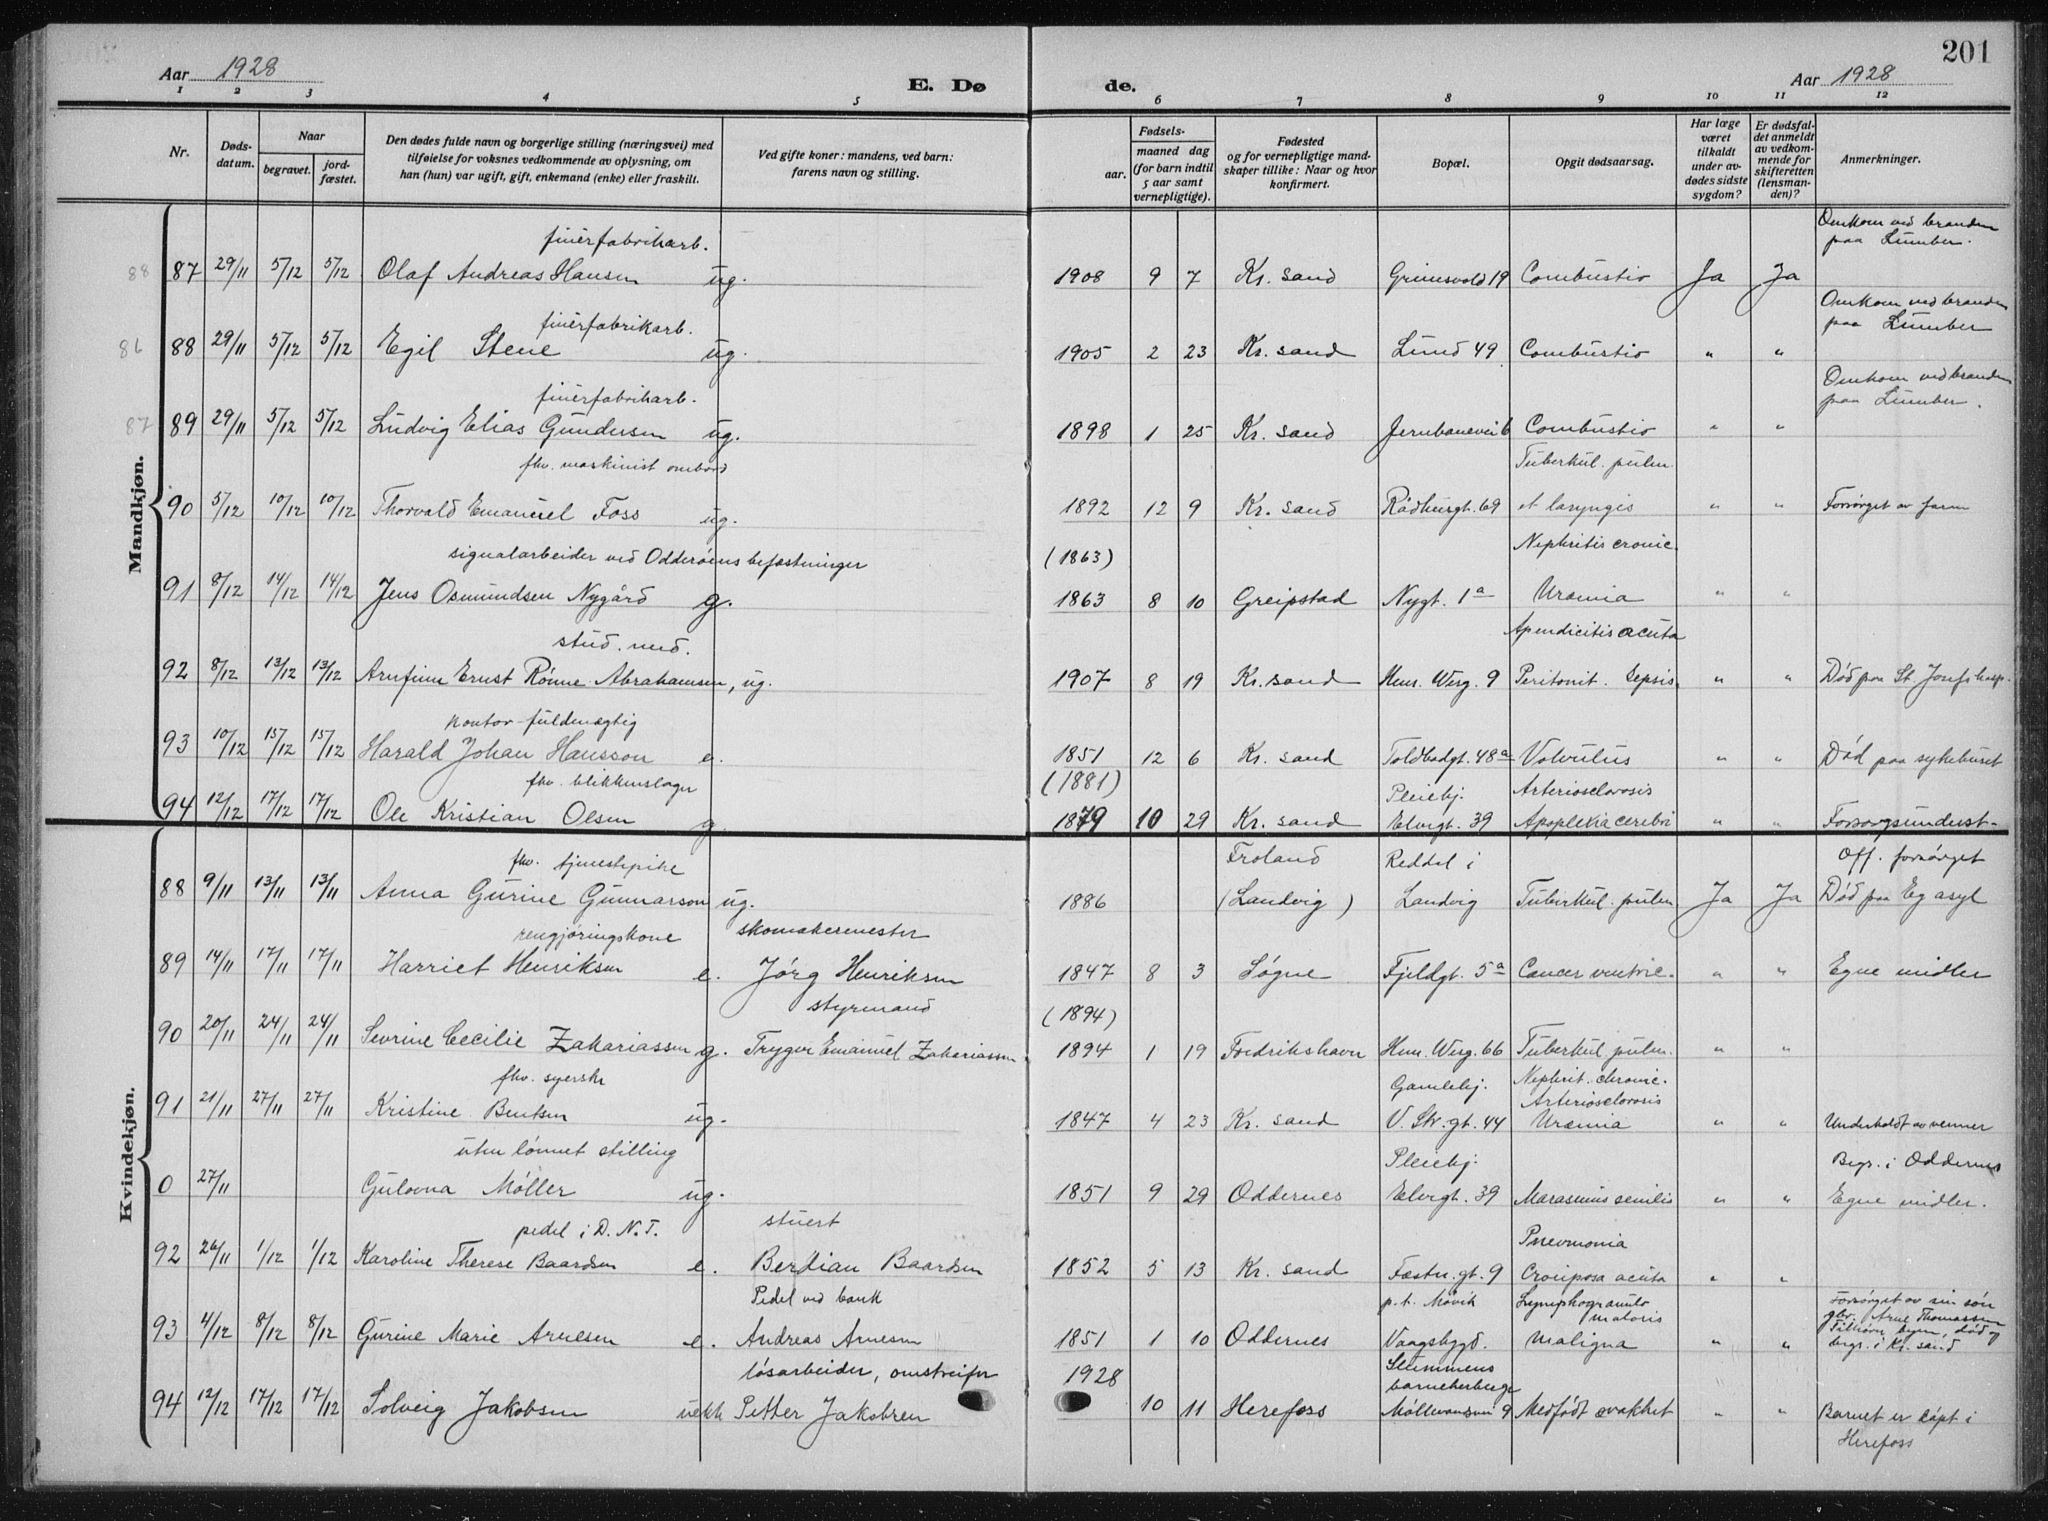 201
Aar 1928 E. Dø de. Aar 1928
1 2 3 4 5 6 7 8 9 10 11 12
Nr. Dødsdatum. Naar begravet. jordfæstet. Den dødes fulde navn og borgerlige stilling (næringsvei) med tilføielse for voksnes vedkommende av oplysning, om han (hun) var ugift, gift, enkemand (enke) eller fraskilt. Ved gifte koner: mandens, ved barn: farens navn og stilling. aar. Fødsels- maaned dag (for barn indtil 5 aar samt vernepligtige). Fødested og for vernepligtige mandskaper tillike: Naar og hvor konfirmert. Bopæl. Opgit dødsaarsag. Har læge været tilkaldt under avdødes sidste sygdom? Er dødsfaldet anmeldt av vedkommende for skifteretten (lensmanden)? Anmerkninger.
Mandkjøn.
finérfabrikarb. Omkom ved branden paa Lumber.
88 87 29/11 5/12 5/12 Olaf Andreas Hansen ug. 1908 9 7 Kr. sand Grimsvold 19 Combustio Ja Ja
finérfabrikarb. Omkom ved branden paa Lumber
86 88 29/11 5/12 5/12 Egil Stene ug. 1905 2 23 Kr. sand Lund 49 Combustio " "
finérfabrikarb. Omkom ved branden paa Lumber.
87 89 29/11 5/12 5/12 Ludvig Elias Gundersen ug. 1898 1 25 Kr. sand Jernbanevei 6 Combustio " "
fhv. maskinist ombord Tuberkul. pulm.
90 5/12 10/12 10/12 Thorvald Emanuel Foss ug. 1892 12 9 Kr. sand Rådhusgt. 69 et laryngis " " Forsørget av faren
signalarbeider ved Odderøens befæstninger (1863) Nephritis cronic.
91 8/12 14/12 14/12 Jens Osmundsen Nygård g. 1863 8 10 Greipstad Nygt. 1a Uræmia " "
stud. med. Apendicitis acuta
92 8/12 13/12 13/12 Arnfinn Ernst Rønne Abrahamsen, ug. 1907 8 19 Kr. sand Henr. Werg. 9 Peritonit. Sepsis. " " Død paa St. Josefs hosp.
kontor-fuldmægtig
93 10/12 15/12 15/12 Harald Johan Hansson e. 1851 12 6 Kr. sand Toldbodgt. 48a Volvulus " " Død paa sykehuset
fhv. blikkenslager (1881) Pleiehj. Arteriosclorosis
94 12/12 17/12 17/12 Ole Kristian Olsen g. 1879 10 29 Kr. sand Elvegt. 39 Apoplexia cerebri " " Forsorgsunderst-
Kvindekjøn.
fhv. tjenestepike Froland Reddal i Off. forsørget
88 9/11 13/11 13/11 Anna Gurine Gunnarson ug. 1886 (Landvig) Landvig Tuberkul. pulm Ja Ja Død paa Eg asyl
rengjøringskone skomakermester
89 14/11 17/11 17/11 Harriet Henriksen e. Jørg Henriksen 1847 8 3 Søgne Fjeldgt. 5a Cancer ventric. " " Egne midler
styrmand (1894)
90 20/11 24/11 24/11 Sevrine Cecilie Zakariassen g. Trygve Emanuel Zakariassen 1894 1 19 Fredrikshavn Henr. Werg. 66 Tuberkul pulm. " "
fhv. syerske Gamlehj. Nephrit. chronic. Arteriosclorosis
91 21/11 27/11 27/11 Kristine Bentsen ug. 1847 4 23 Kr. sand V. Str. gt. 44 Uræmia " " Underholdt av venner
uten lønnet stilling Pleiehj. Begr. i Oddernes
0 27/11 Gulovna Møller ug. 1851 9 29 Oddernes Elvegt. 39 Marasmus senilis " " Egne midler.
pedel i D.N.T. stuert Pneumonia
92 26/11 1/12 1/12 Karoline Therese Baardsen e. Berdian Baardsen 1852 5 13 Kr. sand Fæstn. gt. 9 Crouposa acuta " "
Pedel ved bank p.t. Møvik Lymphogranulomatosis Forsørget av sin søn gbr. Arne Thomassen
93 4/12 8/12 8/12 Gurine Marie Arnesen e. Andreas Arnesen 1851 1 10 Oddernes Vaagsbygd. maligna " " Tilhører byen, død og begr. i Kr. sand
løsarbeider, omstreifer 1928 Slummens barneherberge
94 12/12 17/12 17/12 Solveig Jakobsen uekte Petter Jakobsen 10 11 Herefoss Møllevansvei 9 Medfødt svakhet " " Barnet er døpt i Herefoss